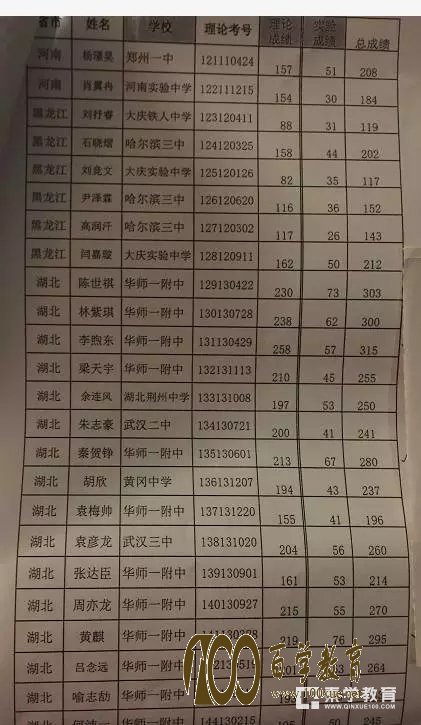 省市 姓名 学校 理论考号 理论成绩 实验成绩 总成绩
河南 杨璟昊 郑州一中 121110424 157 51 208
河南 肖冀冉 河南实验中学 122111215 154 30 184
黑龙江 刘抒睿 大庆铁人中学 123120411 88 31 119
黑龙江 石晓熠 哈尔滨三中 124120325 158 44 202
黑龙江 刘竞文 大庆实验中学 125120126 82 35 117
黑龙江 尹泽霖 哈尔滨三中 126120620 116 36 152
黑龙江 高润汗 哈尔滨三中 127120302 117 26 143
黑龙江 闫嘉璇 大庆实验中学 128120911 162 50 212
湖北 陈世祺 华师一附中 129130422 230 73 303
湖北 林紫琪 华师一附中 130130728 238 62 300
湖北 李煦东 华师一附中 131130429 258 57 315
湖北 梁天宇 华师一附中 132131113 210 45 255
湖北 余连风 湖北荆州中学 133131008 197 53 250
湖北 朱志豪 武汉二中 134130721 200 41 241
湖北 秦贺铮 华师一附中 135130601 213 67 280
湖北 胡欣 黄冈中学 136131207 194 43 237
湖北 袁梅帅 华师一附中 137131220 155 41 196
湖北 袁彦龙 武汉三中 138131020 204 56 260
湖北 张达臣 华师一附中 139130901 161 53 214
湖北 周亦龙 华师一附中 140130927 215 55 270
湖北 黄麒 华师一附中 219 76 295
湖北 吕念远 华师一附中 264
湖北 喻志劼 华师一附中
华师一附中 144130215 50 245
100 百学教育
www.100xue.net
教育
WWW.QINXUE100.COM